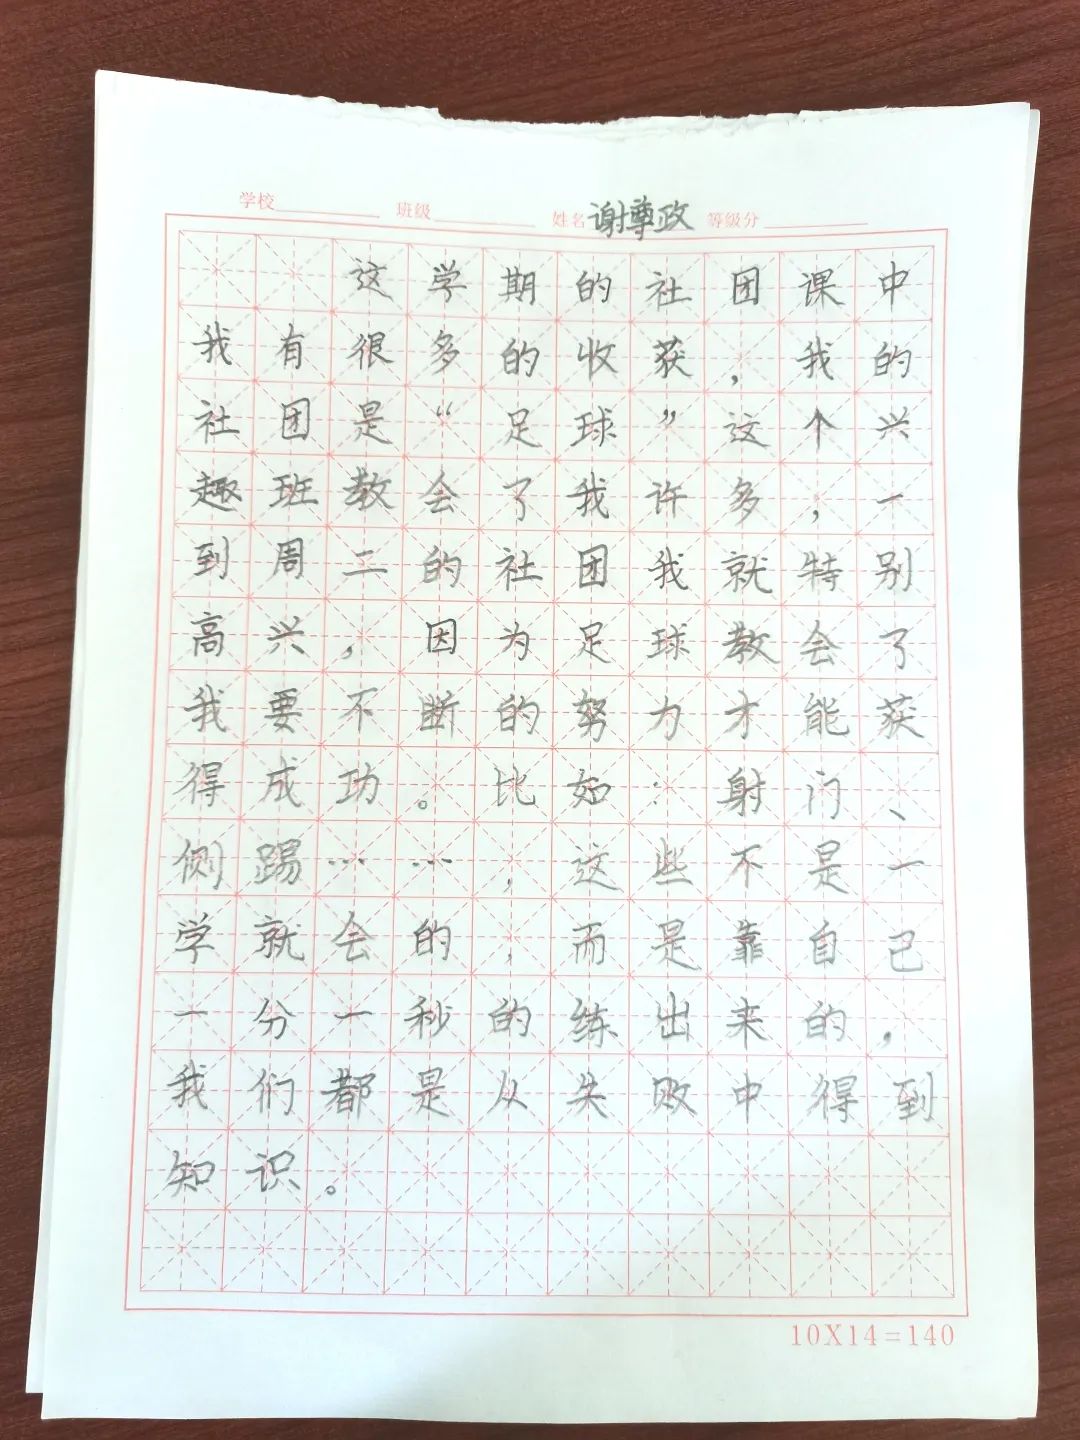 学校 班级 姓名 谢尊政 等级分
这学期的社团课中
我有很多的收获，我的
社团是“足球”这个兴
趣班教会了我许多，一
到周二的社团我就特别
高兴，因为足球教会了
我要不断的努力才能获
得成功。比如：射门、
侧踢……，这些不是一
学就会的，而是靠自己
一分一秒的练出来的，
我们都是从失败中得到
知识。
10X14=140